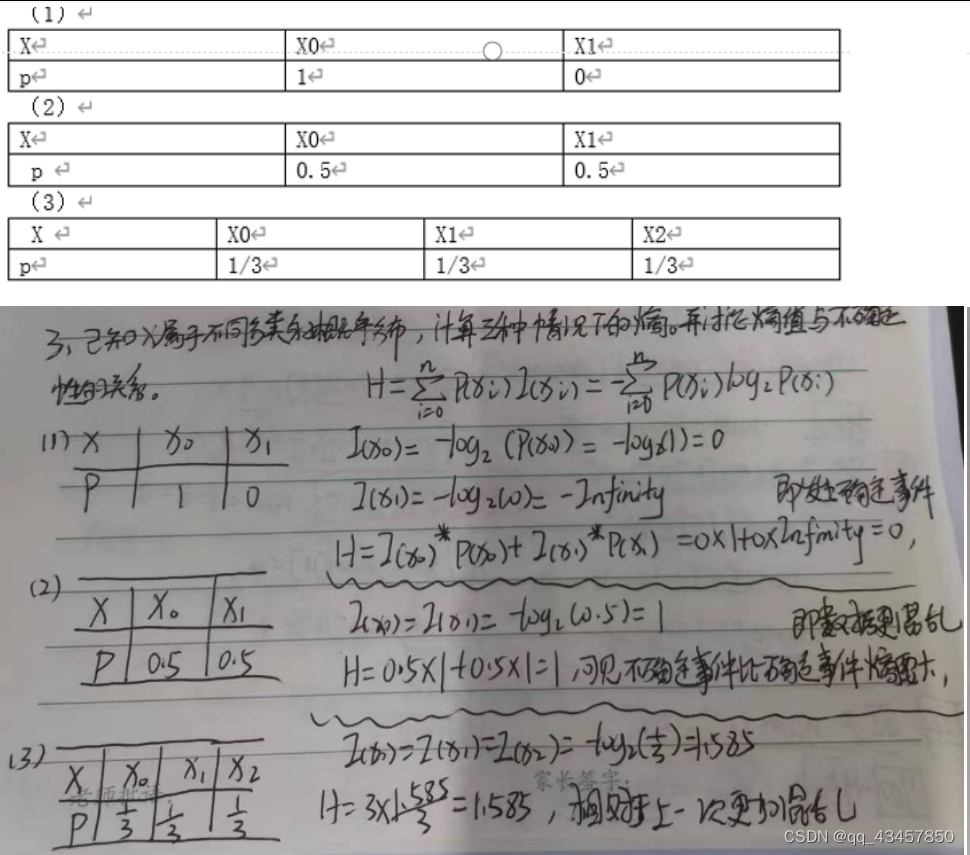 (1)
X X0 X1
p 1 0
(2)
X X0 X1
p 0.5 0.5
(3)
X X0 X1 X2
p 1/3 1/3 1/3
3、已知X属于不同多类的概率分布，计算三种情况下的熵。并讨论熵值与不确定
性的联系。
H=∑ⁿᵢ₌₀P(xᵢ)I(xᵢ)=-∑ⁿᵢ₌₀P(xᵢ)log₂P(xᵢ)
(1) X x₀ x₁
P 1 0
I(x₀)= -log₂(P(x₀)= -log₂(1)=0
I(x₁)= -log₂(0)= -Infinity
即发生确定事件
H=I(x₀)*P(x₀)+I(x₁)*P(x₁)=0×1+0×Infinity=0，
(2) X X₀ X₁
P 0.5 0.5
I(x₀)=I(x₁)= -log₂(0.5)=1
即数据更混乱
H=0.5×1+0.5×1=1，可见不确定事件比确定事件熵要大，
(3) X x₀ x₁ x₂
P 1/3 1/3 1/3
I(x₀)=I(x₁)=I(x₂)= -log₂(1/3)=1.585
老师批语 家长签字:
H=3×1.585/3=1.585，相对于上一次更加混乱
CSDN @qq_43457850